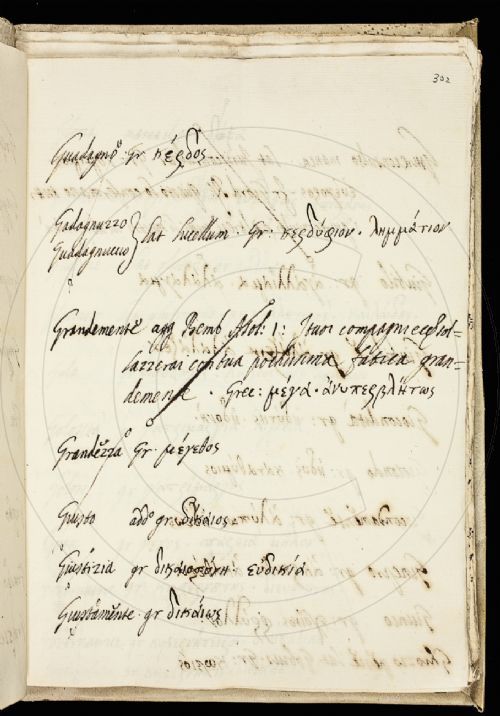 302
Guadagno gr κέρδος
Gadagnuzzo
Guadagnuccio } lat lucellum Gr: κερδύφιον · λημμάτιον
Grandemente agg Bemb Asol: 1: compagni
fatica gran-
demente · Grec: μέγα · ἀνυπερβλήτως
Grandezza Gr · μέγεθος
Giusto add gr δίκαιος
Giustizia gr δικαιοσύνη · εὐδικία
Giustamente · gr δικαίως